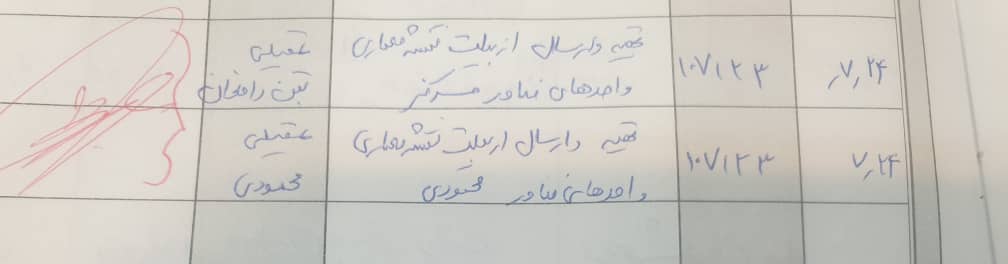 ۷٫۲۴
۱۰۷۱۲۳
تهیه و ارسال ازبیلت نقشه معماری
واحدهای فناور مرکز
عقیلی
۷٫۲۴
۱۰۷۱۲۳
تهیه و ارسال ازبیلت نقشه معماری
واحدهای فناور محمودی
عقیلی
محمودی